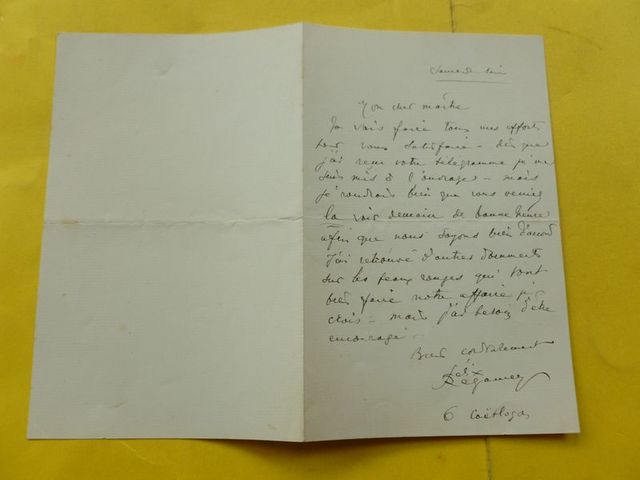 Samedi soir
Mon cher maître
Je vais faire tous mes efforts
pour vous satisfaire - dès que
j'ai reçu votre télégramme je me
suis mis à l'ouvrage - mais
je voudrais bien que vous veniez
la voir demain de bonne heure
afin que nous soyons bien d'accord
J'ai retrouvé d'autres documents
sur les peaux rouges qui vont
bien faire notre affaire je
crois - mais j'ai besoin d'être
encouragé.
Bien cordialement
Félix
Régamey
6 Coëtlogon